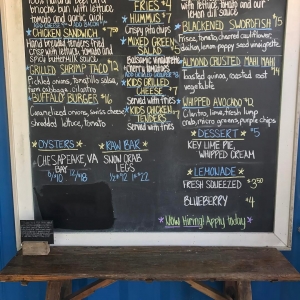 100% natural beef on a
brioche bun with lettuce
tomato and garlic aioli
CHICKEN SANDWICH $7.50
Hand breaded tenders fried
crisp with lettuce, tomato and
spicy buttermilk sauce
GRILLED SHRIMP TACO $12
Pickled onions, tomatillo salsa,
cabbage, cilantro
BUFFALO BURGER $16
Caramelized onions, swiss cheese,
shredded lettuce, tomato
OYSTERS
CHESAPEAKE, VA
BAY
6/$10 12/$18
FRIES $4
HUMMUS $7
Crispy pita chips
MIXED GREEN
SALAD $5
Balsamic vinaigrette
cherry tomatoes
KIDS CHICKEN
Served with fries
KIDS CHICKEN
TENDERS $7
Served with fries
RAW BAR
SNOW CRAB
LEGS
½ $12 1 $22
with lettuce, tomato and our
lemon dill sauce
BLACKENED SWORDFISH $15
Frisee, tomato, charred cauliflower,
daikon, lemon poppy seed vinaigrette
ALMOND CRUSTED MAHI MAHI $14
Toasted quinoa, roasted root
vegetable
WHIPPED AVOCADO $12
Cilantro, lime, fresh lump
crab, micro greens, purple chips
DESSERT $5
KEY LIME PIE,
WHIPPED CREAM
LEMONADE
FRESH SQUEEZED $3.50
BLUEBERRY $4
Now Hiring! Apply today